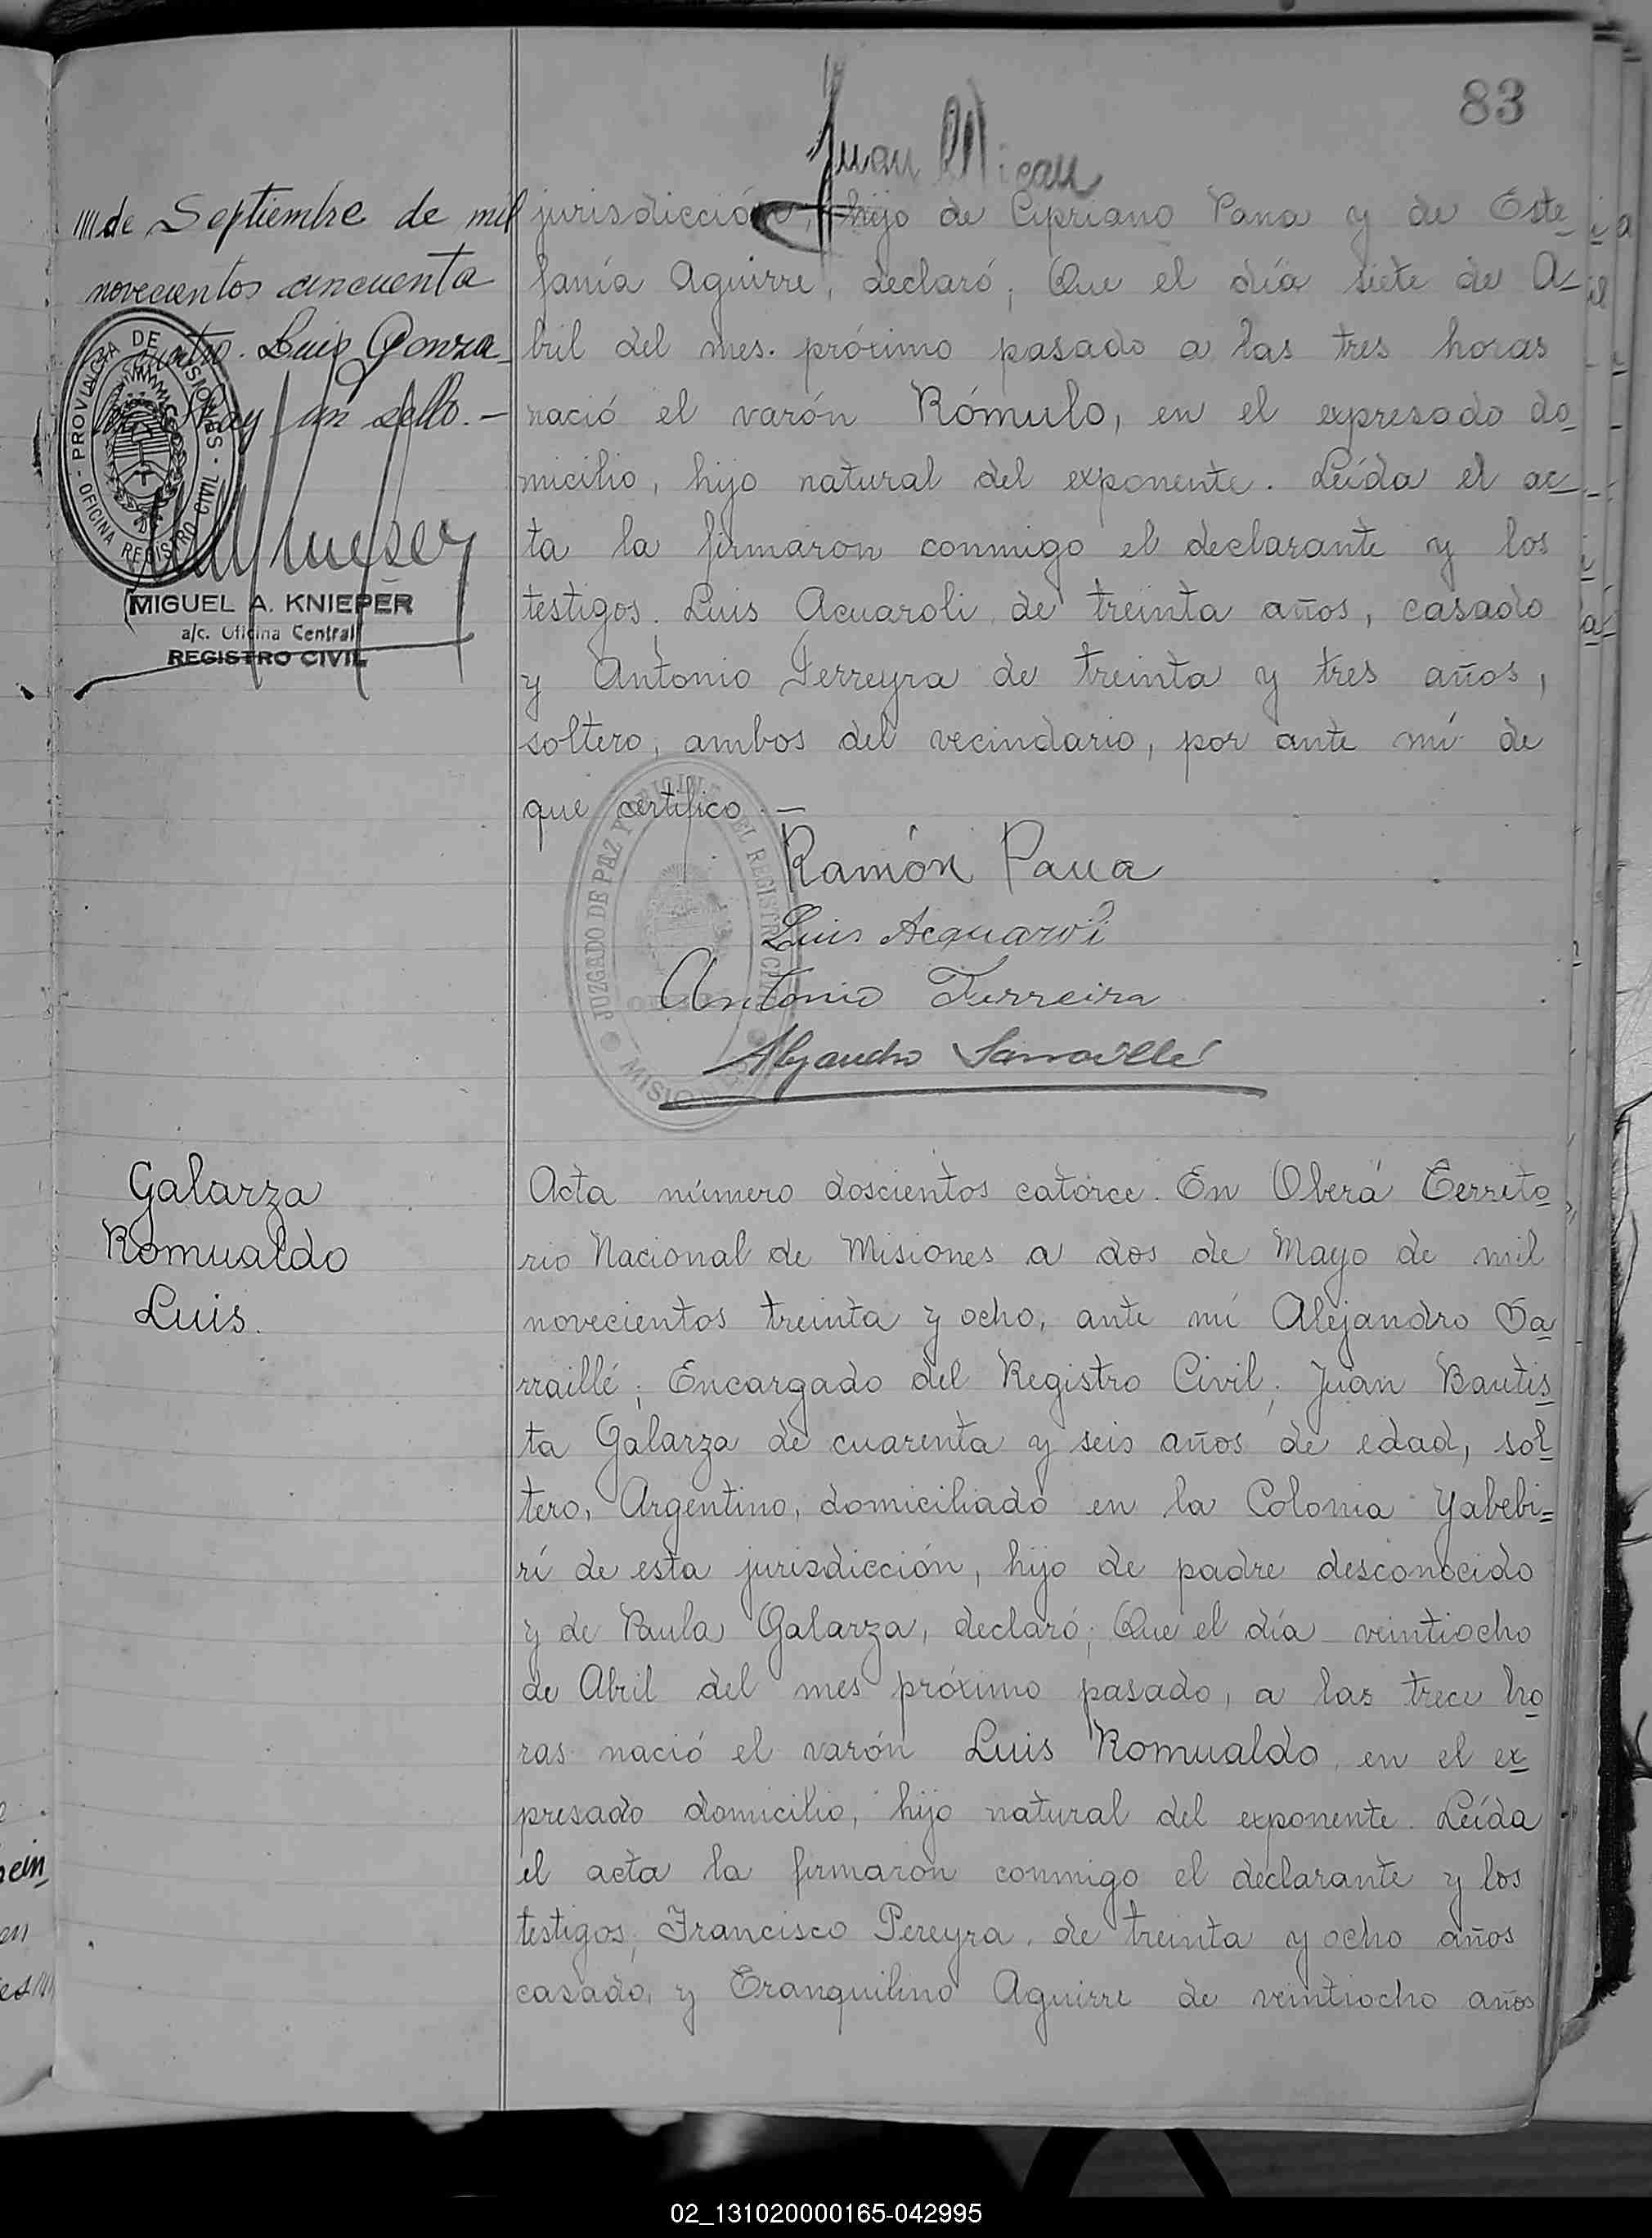 83
Juan
//// de Septiembre de mil
novecientos cincuenta
cuatro. Luis Gonza
hay un sello. —
PROVINCIA DE MISIONES - OFICINA REGISTRO CIVIL -
MIGUEL A. KNIEPER
a/c. Oficina Central
REGISTRO CIVIL
jurisdicción, hijo de Cipriano Pana y de Este
fanía Aguirre, declaró; Que el día siete de A-
bril del mes. próximo pasado a las tres horas
nació el varón Rómulo, en el expresado do
micilio, hijo natural del exponente. Leída el ac-
ta la firmaron conmigo el declarante y los
testigos. Luis Acuaroli de treinta años, casado
y Antonio Ferreyra de treinta y tres años,
soltero, ambos del vecindario, por ante mí de
que certifico. —
JUZGADO DE PAZ DEL REGISTRO CIVIL
MISIONES
Ramón Pana
Luis Acquaroli
Antonio Ferreira
Alejandro Sarraillé
Galarza
Romualdo
Luis.
Acta número doscientos catorce. En Oberá Territo
rio Nacional de Misiones a dos de Mayo de mil
novecientos treinta y ocho, ante mí Alejandro Sa
rraillé; Encargado del Registro Civil; Juan Bautis
ta Galarza de cuarenta y seis años de edad, sol
tero, Argentino, domiciliado en la Colonia Yabebi=
rí de esta jurisdicción, hijo de padre desconocido
y de Paula Galarza, declaró; Que el día veintiocho
de Abril del mes próximo pasado, a las trece ho
ras nació el varón Luis Romualdo, en el ex
presado domicilio, hijo natural del exponente. Leída
el acta la firmaron conmigo el declarante y los
testigos; Francisco Pereyra, de treinta y ocho años
casado, y Tranquilino Aguirre de veintiocho años
02_131020000165-042995